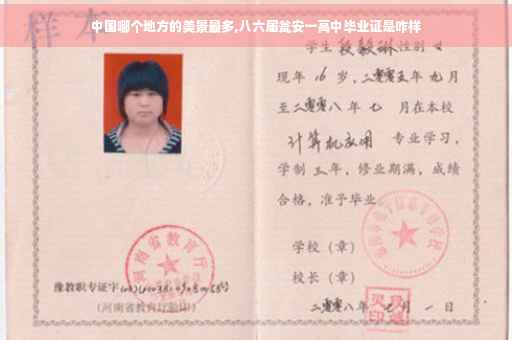 中国哪个地方的美景最多,八六届瓮安一高中毕业证是咋样
样本
学生段毅琳性别女
现年16岁,二零零五年九月
至二零零八年七月在本校
计算机应用 专业学习,
学制三年,修业期满,成绩
合格,准予毕业
学校(章)
校长(章)
二零零八年七月一日
河南省教育厅
豫教职专证字
(河南省教育厅验印)